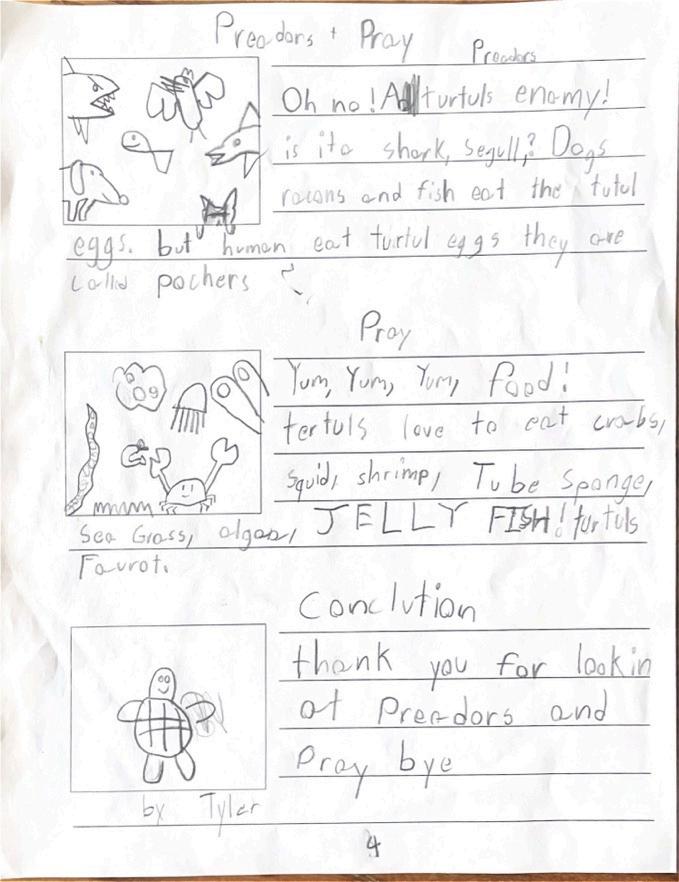 Preadors + Pray
Preadors
Oh no! A turtuls enemy!
is ita shark, segull,? Dogs
racons and fish eat the tutul
eggs. but human eat turtul eggs they are
called pochers
Pray
Yum, Yum, Yum, food!
tertuls love to eat crabs,
squid, shrimp, Tube Sponge,
Sea Grass, algae, JELLY FISH! turtuls
Favrot.
Conclution
thank you for lookin
at Preadors and
Pray bye
by Tyler
4